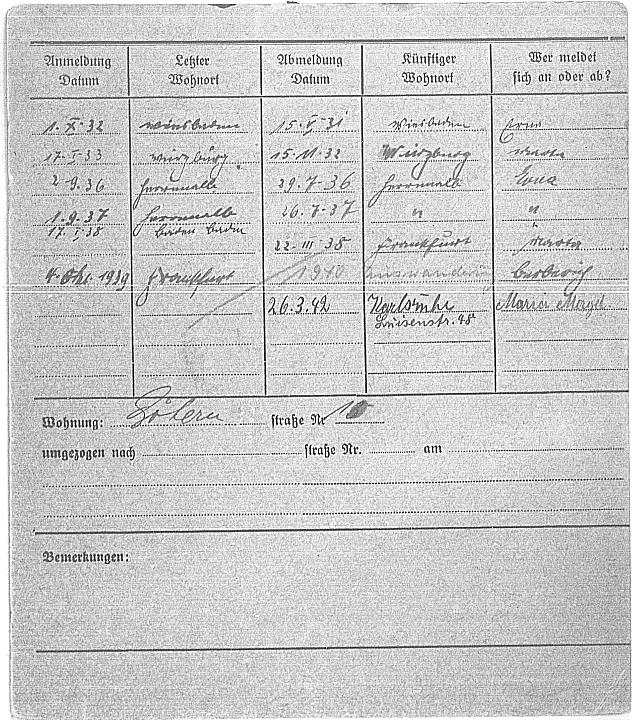 Anmeldung Datum Letzter Wohnort Abmeldung Datum Künftiger Wohnort Wer meldet sich an oder ab?
1. XI. 32 Wiesbaden 15. V. 31 Wiesbaden Erna
17. I. 33 Würzburg 15. 11. 32 Würzburg Marta
2. 9. 36 Herrenalb 29. 7. 36 Herrenalb
1. 9. 37 Herrenalb 26. 7. 37 " "
17. I. 38 Baden Baden
22. III. 38 Frankfurt Marta
4. Okt. 1939 Frankfurt 1940
26. 3. 42 Karlsruhe Maria
Luisenstr. 48
Wohnung: straße Nr 10
umgezogen nach straße Nr. am
Bemerkungen: